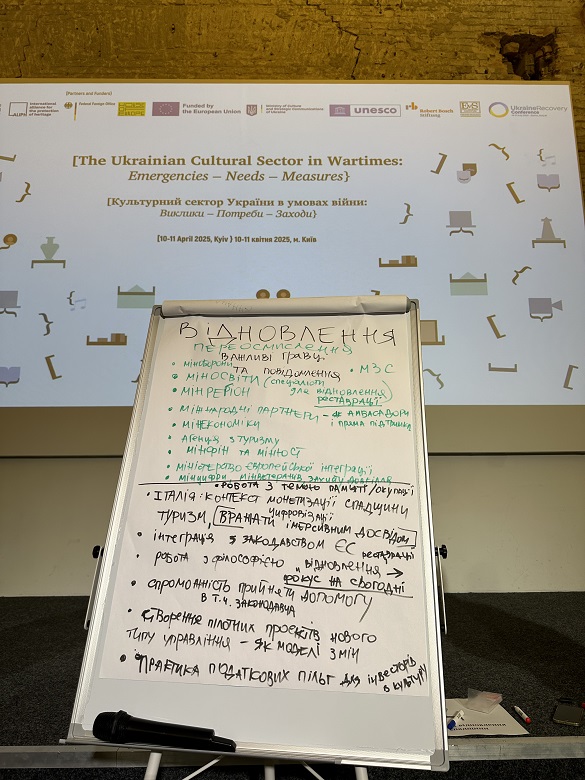 [Partners and Funders]
International alliance for the protection of heritage
ALIPH
Federal Foreign Office
Funded by the European Union
Ministry of Culture and Strategic Communications of Ukraine
unesco
Robert Bosch Stiftung
Ukraine Recovery Conference
[The Ukrainian Cultural Sector in Wartimes:
Emergencies – Needs – Measures}
[Культурний сектор України в умовах війни:
Виклики – Потреби – Заходи}
[10-11 April 2025, Kyiv } 10-11 квітня 2025, м. Київ
ВІДНОВЛЕННЯ
ПЕРЕОСМИСЛЕННЯ
ВАЖЛИВІ ГРАВЦІ
ТА ПОВІДОМЛЕННЯ
• МІНОБОРОНИ
• МЗС
• МІНОСВІТИ (спеціалісти
для відновлення)
реставрації
• МІНРЕГІОН
• МІЖНАРОДНІ ПАРТНЕРИ – АМБАСАДОРИ
і пряма підтримка
• МІНЕКОНОМІКИ
• Агенція з туризму
• МІНФІН ТА МІНЮСТ
• МІНІСТЕРСТВО ЄВРОПЕЙСЬКОЇ ІНТЕГРАЦІЇ
• Мінцифри, Міністерство захисту довкілля
• РОБОТА З ТЕМОЮ ПАМ'ЯТІ/ОКУПАЦІЇ
• ІТАЛІЯ: КОНТЕКСТ МОНЕТИЗАЦІЇ СПАДЩИНИ
цифровізації
ТУРИЗМ, ВРАЖАТИ ІМЕРСИВНИМ ДОСВІДОМ
• інтеграція з ЗАКОДАВСТВОМ ЄС
реставрації
• робота з філософією "відновлення →
ФОКУС НА СЬОГОДНІ
• СПРОМОЖНІСТЬ ПРИЙНЯТИ ДОПОМОГУ
В Т.Ч. ЗАКОНОДАВЧА
• Створення пілотних проєктів нового
типу управління – як моделі змін
• ПРАКТИКА ПОДАТКОВИХ ПІЛЬГ ДЛЯ ІНВЕСТОРІВ
В КУЛЬТУРУ